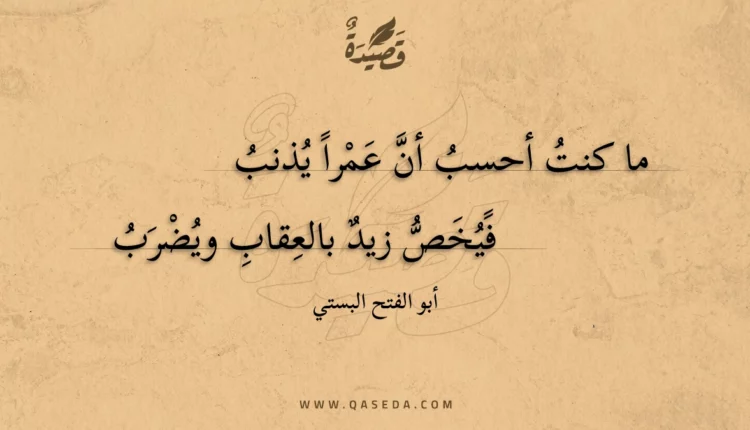 قَصِيدَةٌ
ما كنتُ أحسبُ أنَّ عَمْراً يُذنبُ
فًيُخَصُّ زيدٌ بالعِقابِ ويُضْرَبُ
أبو الفتح البستي
WWW.QASEDA.COM